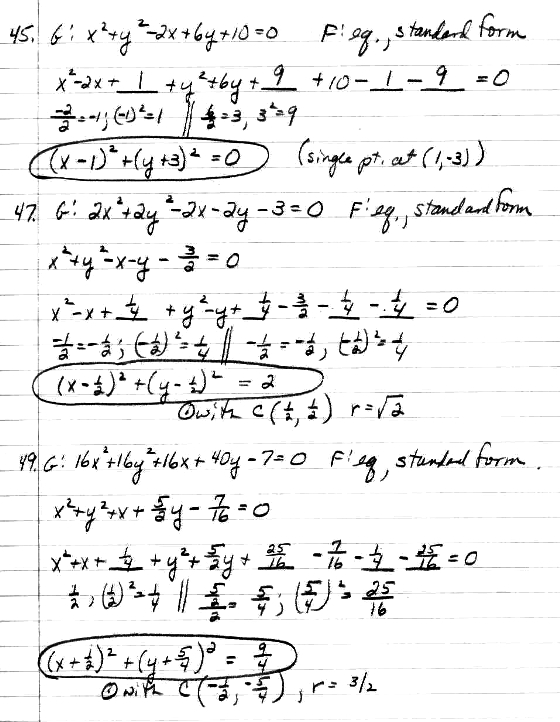 45. G: x²+y²-2x+6y+10=0 F: eq., standard form
x²-2x+ 1 +y²+6y+ 9 +10- 1 - 9 =0
-2/2=-1; (-1)²=1 || 6/2=3, 3²=9
(x-1)²+(y+3)²=0 (single pt. at (1,-3))
47. G: 2x²+2y²-2x-2y-3=0 F: eq., standard form
x²+y²-x-y-3/2=0
x²-x+ 1/4 +y²-y+ 1/4 -3/2- 1/4 - 1/4 =0
-1/2=-1/2; (-1/2)²=1/4 || -1/2=-1/2, (-1/2)²=1/4
(x-1/2)²+(y-1/2)²=2
⊙ with C(1/2, 1/2) r=√2
49. G: 16x²+16y²+16x+40y-7=0 F: eq, standard form.
x²+y²+x+5/2y-7/16=0
x²+x+ 1/4 +y²+5/2y+ 25/16 -7/16- 1/4 - 25/16 =0
1/2, (1/2)²=1/4 || 5/2/2=5/4; (5/4)²=25/16
(x+1/2)²+(y+5/4)²=9/4
⊙ with C(-1/2, -5/4), r=3/2